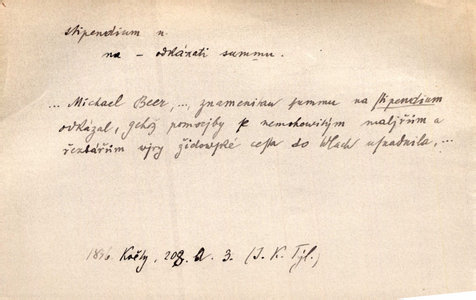 stipendium n.
na – odkázati summu.
... Michael Beer, ..., znamenitau summu na stipendium
odkázal, gehož pomocjby se nemohowitým maljřům a
řezbářům wjry židowské cesta do Wlach usnadnila, ...
1836 Květy, 208. a. 3. (J. K. Tyl.)